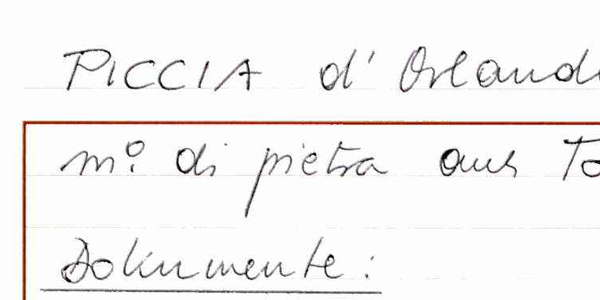 PICCIA d' Orland
m.º di pietra aus To
Dokumente: